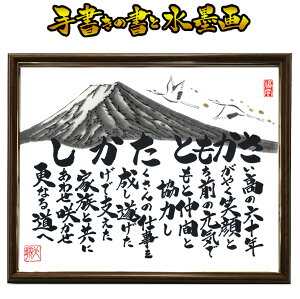 手書きの書と水墨画
さい高の六十年
かがやく笑顔と
もち前の元気で
ともに仲間と
協力し
たくさんの仕事を
成し遂げた
かげで支えた
家族と共に
しあわせ咲かせ
更なる道へ